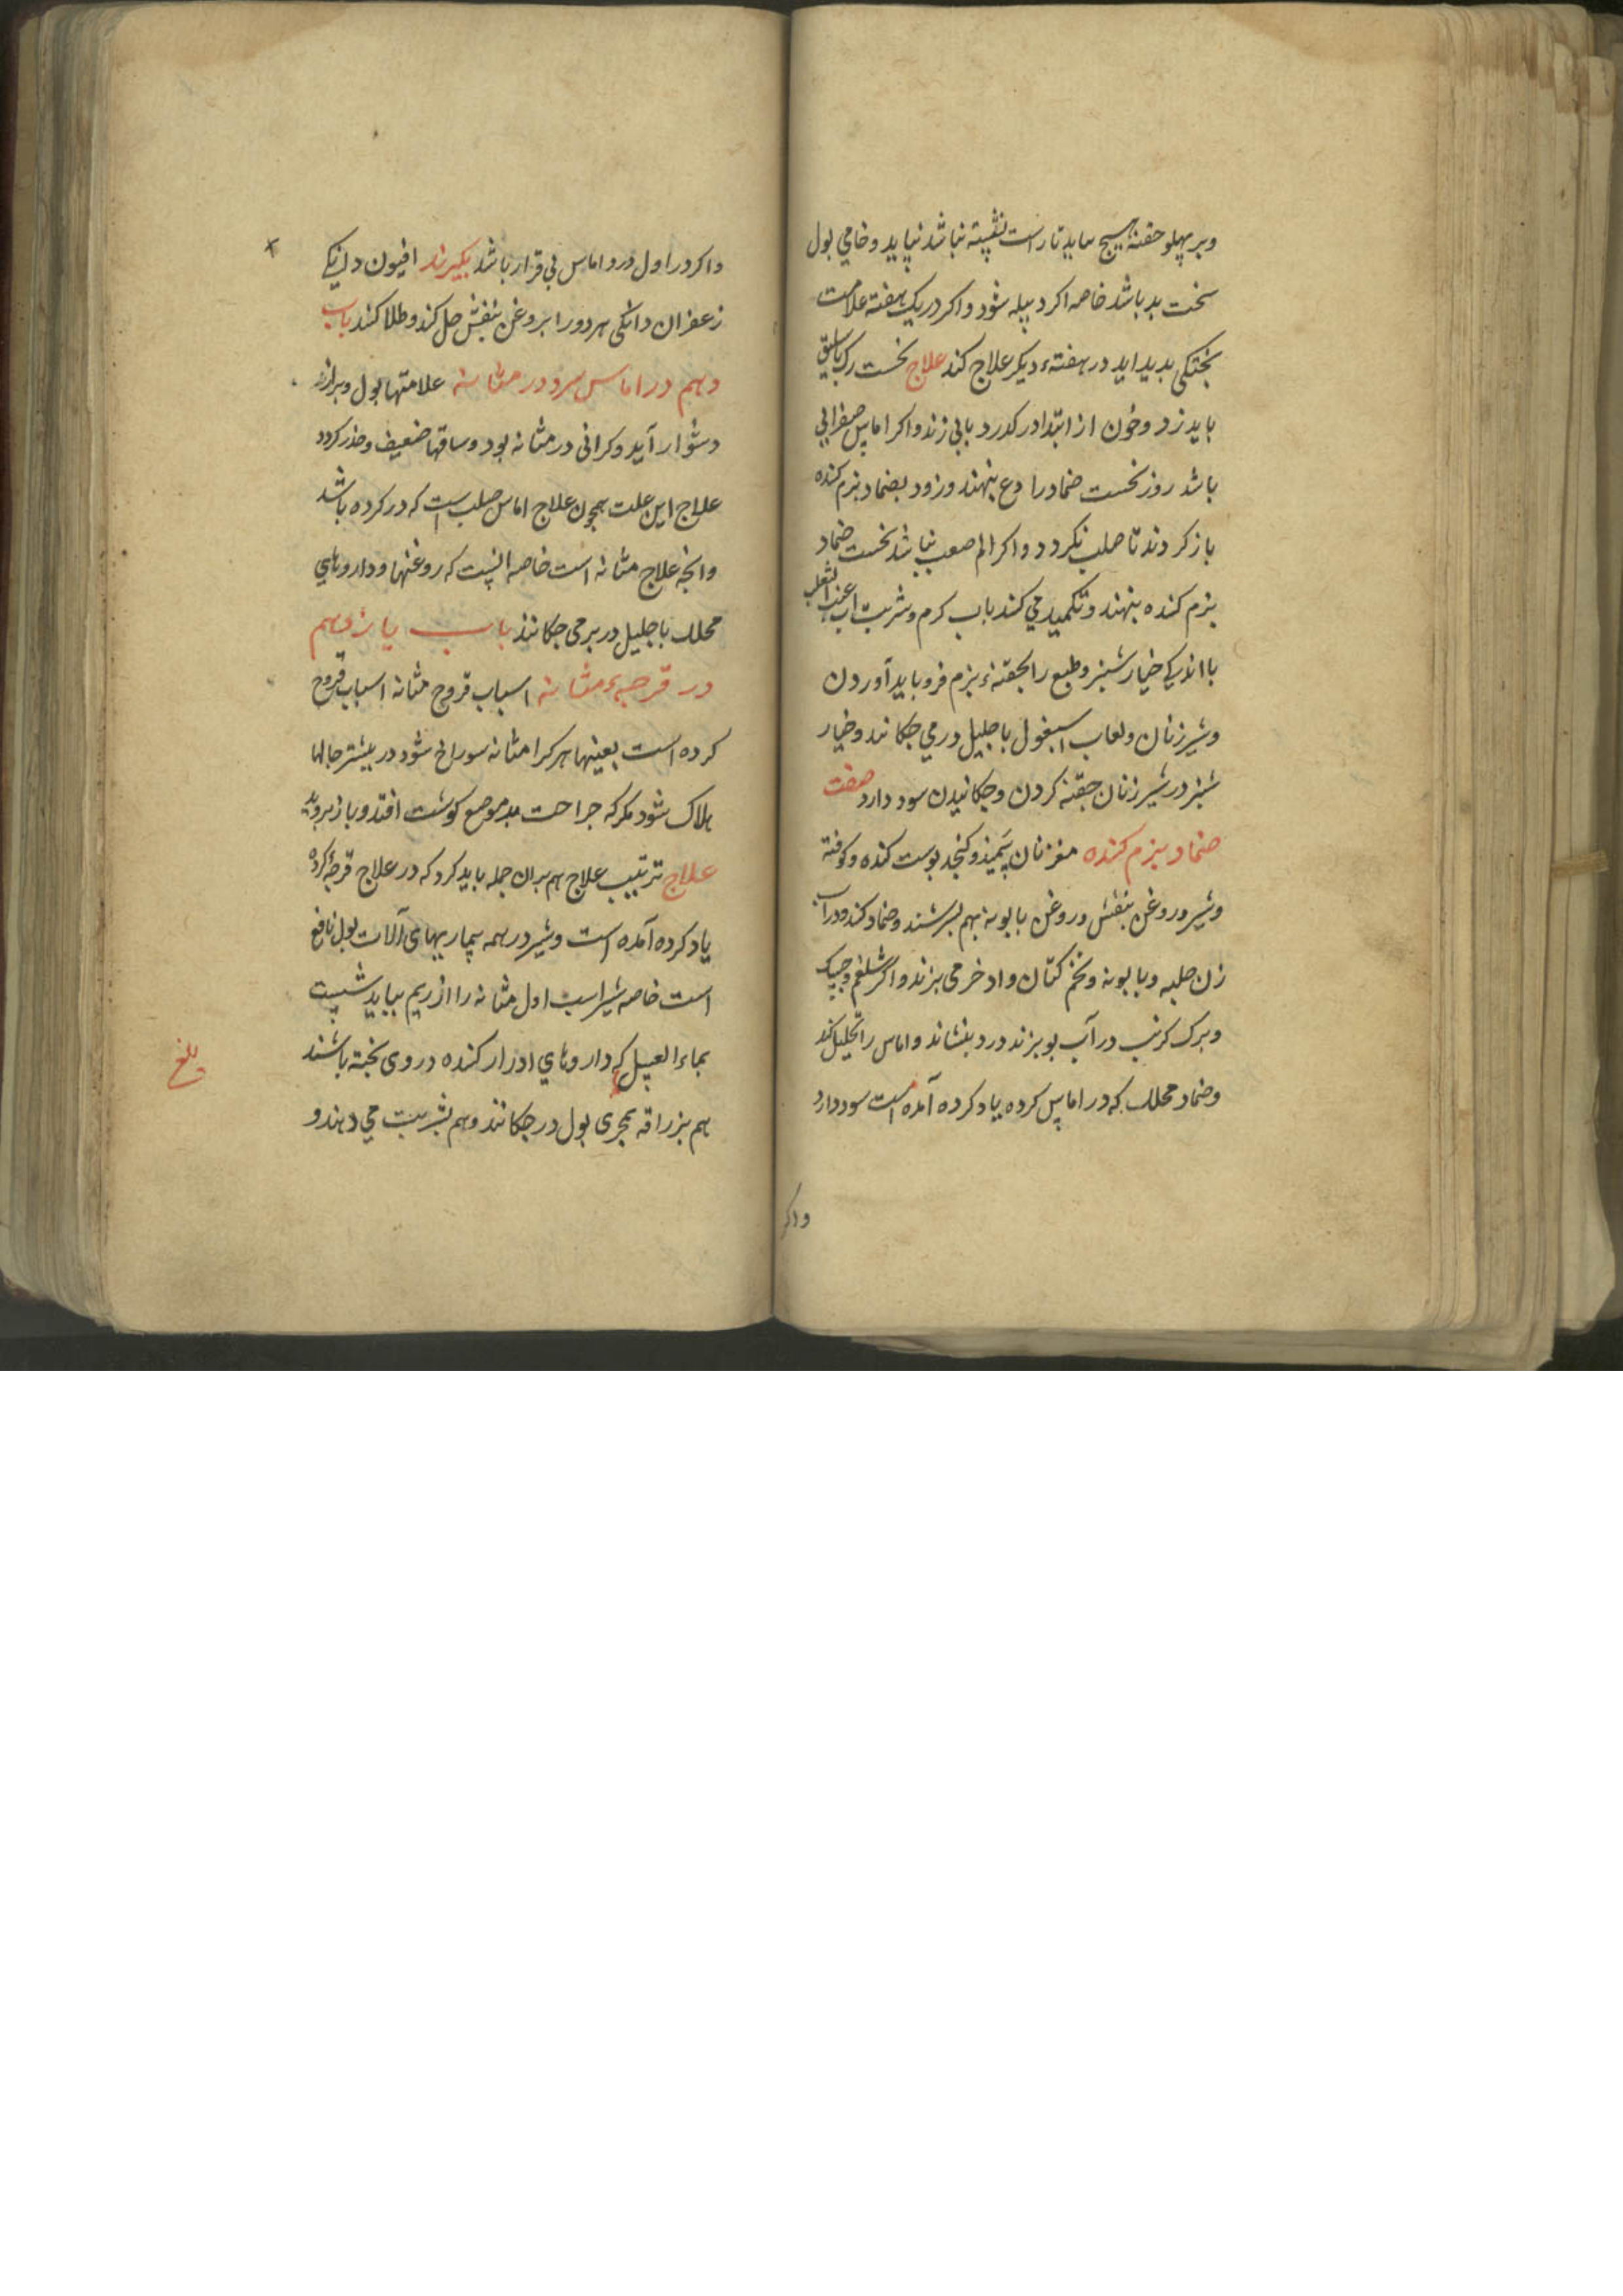 وبر پهلو حقنه هیچ نیاید تا راست نشسته نباشد نپاید و خامی بول
سخت بد باشد خاصه اکر دبیله شود واکر در یک هفته علامت
پختکی بدید اید در هفتهٔ دیکر علاج کند علاج نخست رک باسلیق
باید زد و خون از ابتدا در کدرد یابی زند واکر اماس صفرایی
باشد روز نخست ضماد رادع بنهند وزود بضماد نرم کننده
باز کردند تا صلب نکردد واکر الم صعب نباشد نخست ضماد
نرم کننده بنهند وتکمید می کنند باب کرم وشربت اب عنب الثعلب
با اندکی خیارشنبر وطبع را بحقنهٔ نرم فرو باید آوردن
وشیر زنان ولعاب اسبغول باحلیل در می چکانند وخیار
شنبر در شیر زنان حقنه کردن وچکانیدن سود دارد صفت
ضماد نرم کننده مغز نان سمیذ و کنجد بوست کنده وکوفته
وشیر وروغن بنفش وروغن بابونه بهم بسرشند وضماد کنند ودر آب
زن حلبه وبابونه وتخم کتان واذخر می بزند واکر شلغم وچیک
وبرک کرنب در آب بو بزند درد بنشاند واماس را تحلیل کند
وضماد محلل که در اماس کرده یاد کرده آمده است سود دارد
واکر
واکر در اول درد اماس بی قرار باشد بکیرند افیون دانکی
زعفران دانکی هر دو را بروغن بنفش حل کند وطلا کند باب
دهم در اماس سرد در مثانه علامتها بول وبراز
دشوار آید وکرانی در مثانه بود وساقها ضعیف وخدر کردد
علاج این علت همچون علاج اماس صلب است که در کرده باشد
وانچه علاج مثانه است خاصه انست که روغنها وداروهای
محلل باحلیل در بر می چکانند باب یازدهم
در قرحهٔ مثانه اسباب قروح مثانه اسباب قروح
کرده است بعینها هر کرا مثانه سوراخ شود در بیشتر حالها
هلاک شود مکر که جراحت بر موضع کوشت افتد وباز بروید
علاج ترتیب علاج هم بران جمله باید کرد که در علاج قرحهٔ کرده
یاد کرده آمده است وشیر در همه بیماریهای آلات بول نافع
است خاصه شیر اسب اول مثانه را از ریم بباید شست
بماء العسل که داروهای ادرار کننده در وی بخته باشند
هم بزراقه بمجری بول در چکانند وهم بشربت می دهند و
بلغ